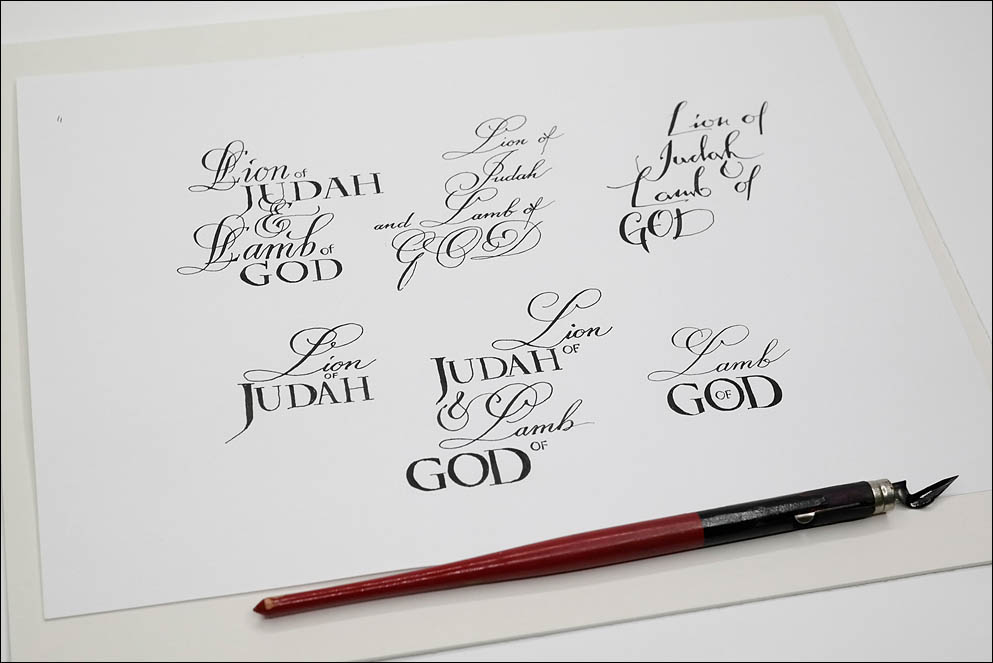 Lion of
JUDAH
&
Lamb of
GOD
Lion of
Judah
and Lamb of
GOD
Lion of
Judah
Lamb of
GOD
Lion
OF
JUDAH
Lion
JUDAH OF
& Lamb
OF
GOD
Lamb
GOD OF